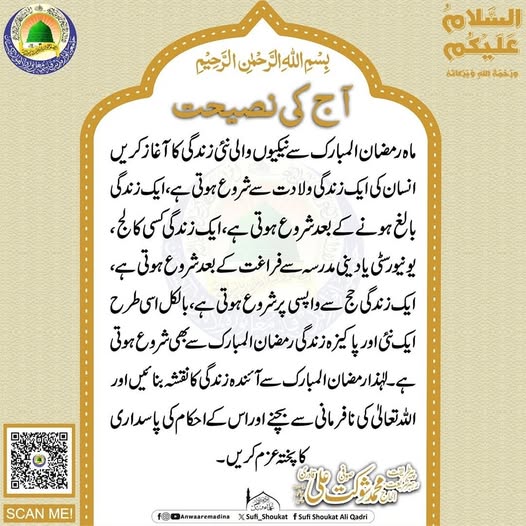 السلام
علیکم
ورحمة الله وبركاته
بِسْمِ اللهِ الرَّحْمٰنِ الرَّحِيْمِ
آج کی نصیحت
ماہ رمضان المبارک سے نیکیوں والی نئی زندگی کا آغاز کریں
انسان کی ایک زندگی ولادت سے شروع ہوتی ہے، ایک زندگی
بالغ ہونے کے بعد شروع ہوتی ہے، ایک زندگی کسی کالج،
یونیورسٹی یا دینی مدرسہ سے فراغت کے بعد شروع ہوتی ہے،
ایک زندگی حج سے واپسی پر شروع ہوتی ہے، بالکل اسی طرح
ایک نئی اور پاکیزہ زندگی رمضان المبارک سے بھی شروع ہوتی
ہے۔ لہٰذا رمضان المبارک سے آئندہ زندگی کا نقشہ بنائیں اور
اللہ تعالیٰ کی نافرمانی سے بچنے اور اس کے احکام کی پاسداری
کا پختہ عزم کریں۔
محمد شوکت علی
SCAN ME!
Anwaaremadina Sufi_Shoukat Sufi Shoukat Ali Qadri